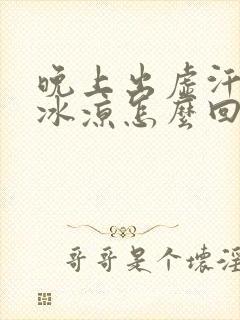 晚上出虚汗
冰凉怎麼回
哥哥是个壞淫